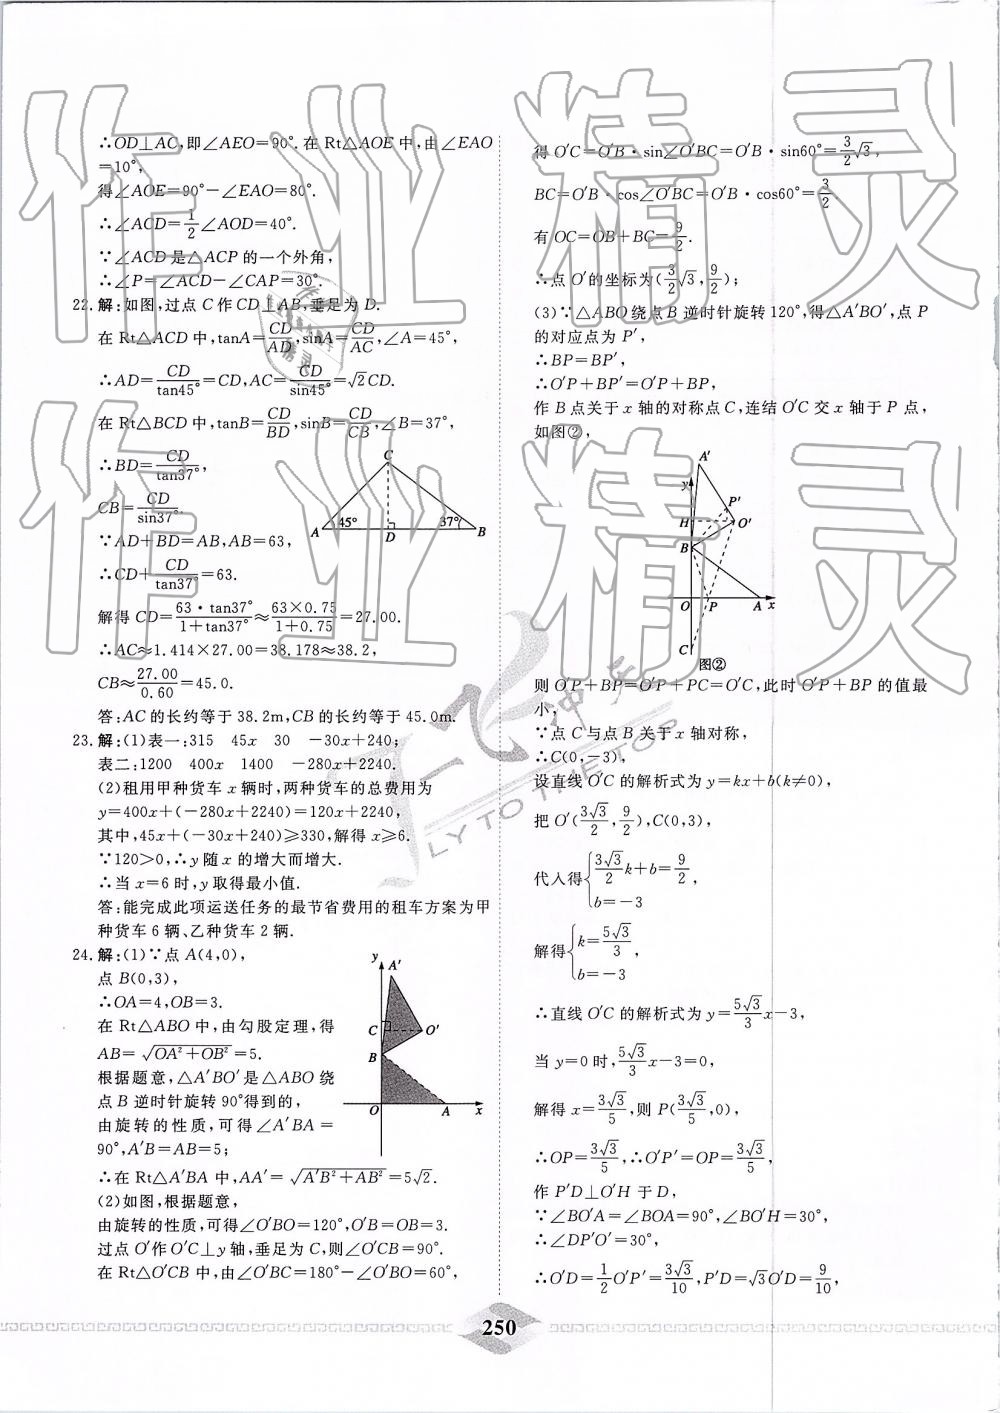 ∴OD⊥AC,即∠AEO=90°.在 Rt△AOE 中,由∠EAO
=10°,
得∠AOE=90°-∠EAO=80°.
∴∠ACD=1/2∠AOD=40°.
∵∠ACD是△ACP的一个外角,
∴∠P=∠ACD-∠CAP=30°.
22.解:如图,过点 C 作 CD⊥AB,垂足为 D.
在 Rt△ACD 中,tanA=CD/AD,sinA=CD/AC,∠A=45°,
∴AD=CD/tan45°=CD,AC=CD/sin45°=√2CD.
在 Rt△BCD 中,tanB=CD/BD,sinB=CD/CB,∠B=37°,
∴BD=CD/tan37°,
CB=CD/sin37°.
∵AD+BD=AB,AB=63,
∴CD+CD/tan37°=63.
解得 CD=63·tan37°/(1+tan37°)≈63×0.75/(1+0.75)=27.00.
∴AC≈1.414×27.00=38.178≈38.2,
CB≈27.00/0.60=45.0.
答:AC的长约等于38.2m,CB的长约等于45.0m.
C
45°
37°
A
D
B
23.解:(1)表一:315 45x 30 -30x+240;
表二:1200 400x 1400 -280x+2240.
(2)租用甲种货车 x 辆时,两种货车的总费用为
y=400x+(-280x+2240)=120x+2240,
其中,45x+(-30x+240)≥330,解得 x≥6.
∵120>0,∴y 随 x 的增大而增大.
∴当 x=6 时,y 取得最小值.
答:能完成此项运送任务的最节省费用的租车方案为甲
种货车6辆、乙种货车2辆.
24.解:(1)∵点 A(4,0),
点 B(0,3),
∴OA=4,OB=3.
在 Rt△ABO 中,由勾股定理,得
AB=√(OA²+OB²)=5.
根据题意,△A′BO′是△ABO 绕
点 B 逆时针旋转 90°得到的,
由旋转的性质,可得∠A′BA=
90°,A′B=AB=5;
∴在 Rt△A′BA 中,AA′=√(A′B²+AB²)=5√2.
y
A′
C
O′
B
O
A
x
(2)如图,根据题意,
由旋转的性质,可得∠O′BO=120°,O′B=OB=3.
过点 O′作 O′C⊥y 轴,垂足为 C,则∠O′CB=90°.
在 Rt△O′CB 中,由∠O′BC=180°-∠O′BO=60°,
得 O′C=O′B·sin∠O′BC=O′B·sin60°=3/2√3,
BC=O′B·cos∠O′BC=O′B·cos60°=3/2
有 OC=OB+BC=9/2.
∴点 O′的坐标为(3/2√3,9/2);
(3)∵△ABO绕点 B 逆时针旋转120°,得△A′BO′,点 P
的对应点为 P′,
∴BP=BP′,
∴O′P+BP′=O′P+BP,
作 B 点关于 x 轴的对称点 C,连结 O′C 交 x 轴于 P 点,
如图②,
A′
y
P′
H
O′
B
O
P
A
x
C
图②
则 O′P+BP=O′P+PC=O′C,此时 O′P+BP 的值最
小,
∵点 C 与点 B 关于 x 轴对称,
∴C(0,-3),
设直线 O′C 的解析式为 y=kx+b(k≠0),
把 O′(3√3/2,9/2),C(0,3),
代入得{3√3/2k+b=9/2,
b=-3
解得{k=5√3/3,
b=-3
∴直线 O′C 的解析式为 y=5√3/3x-3,
当 y=0 时,5√3/3x-3=0,
解得 x=3√3/5,则 P(3√3/5,0),
∴OP=3√3/5,∴O′P′=OP=3√3/5,
作 P′D⊥O′H 于 D,
∵∠BO′A=∠BOA=90°,∠BO′H=30°,
∴∠DP′O′=30°,
∴O′D=1/2O′P′=3√3/10,P′D=√3O′D=9/10,
250
作业精灵
作业精灵
一飞冲
LY TO THE TO